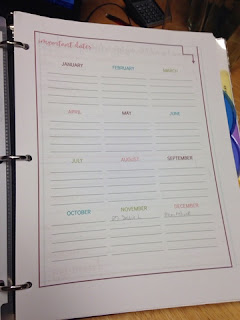 important dates
JANUARY
FEBRUARY
MARCH
APRIL
MAY
JUNE
JULY
AUGUST
SEPTEMBER
OCTOBER
NOVEMBER
DECEMBER